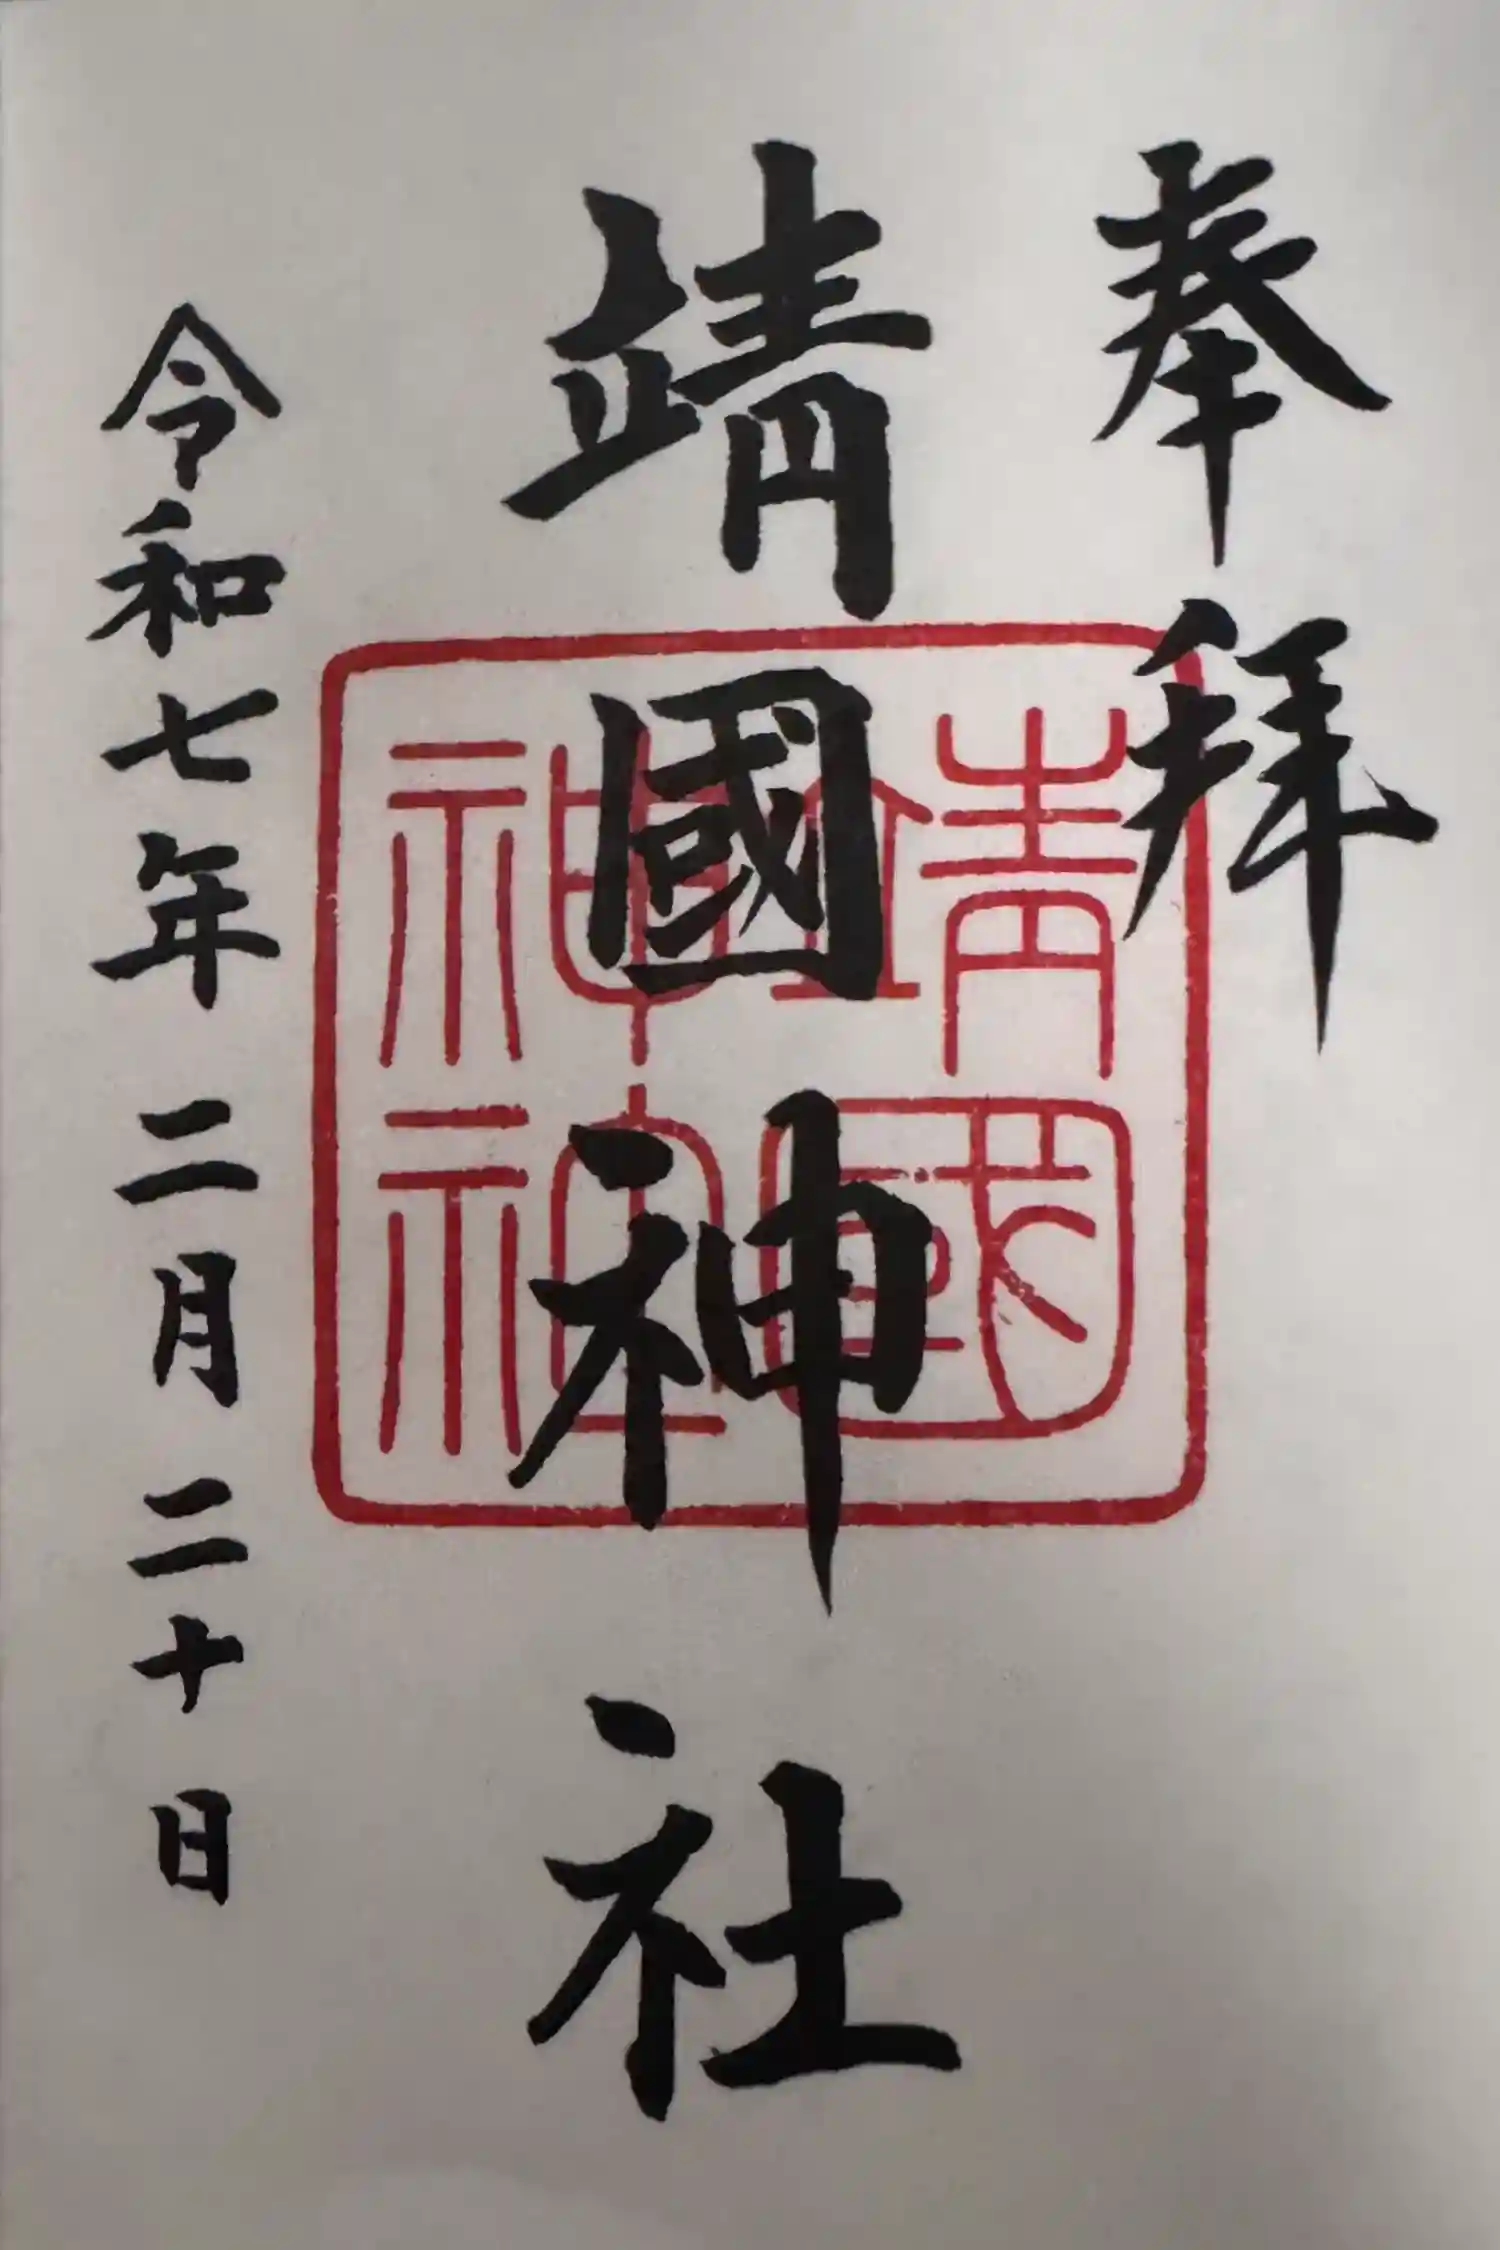 奉拜
靖國神社
靖國神社
令和七年二月二十日